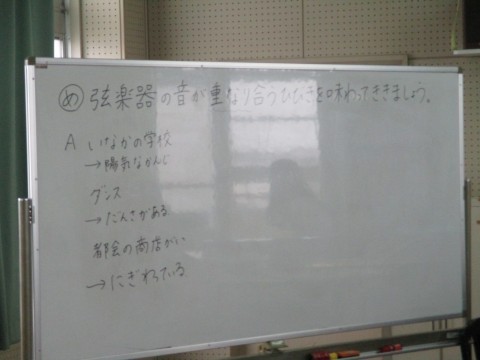 め 弦楽器の音が重なり合うひびきを味わってききましょう。
A いなかの学校
→陽気なかんじ
ダンス
→だんさがある
都会の商店がい
→にぎわっている